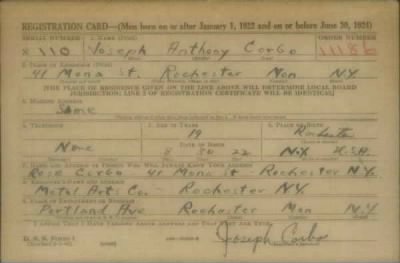 REGISTRATION CARD—(Men born on or after January 1, 1922 and on or before June 30, 1924)
SERIAL NUMBER 1. NAME (Print) ORDER NUMBER
110 Joseph Anthony Corbo 11186
2. PLACE OF RESIDENCE (Print)
41 Mona St. Rochester Mon N.Y.
[THE PLACE OF RESIDENCE GIVEN ON THE LINE ABOVE WILL DETERMINE LOCAL BOARD
JURISDICTION; LINE 2 OF REGISTRATION CERTIFICATE WILL BE IDENTICAL]
3. MAILING ADDRESS
Same
4. TELEPHONE 5. AGE IN YEARS 6. PLACE OF BIRTH
19 Rochester
DATE OF BIRTH
None 22 N.Y. U.S.A.
7. NAME AND ADDRESS OF PERSON WHO WILL ALWAYS KNOW YOUR ADDRESS
Rose Corbo 41 Mona St Rochester N.Y.
8. EMPLOYER'S NAME AND ADDRESS
Metal Arts Co - Rochester N.Y.
9. PLACE OF EMPLOYMENT OR BUSINESS
Portland Ave Rochester Mon N.Y.
I AFFIRM THAT I HAVE VERIFIED ABOVE ANSWERS AND THAT THEY ARE TRUE.
Joseph Corbo